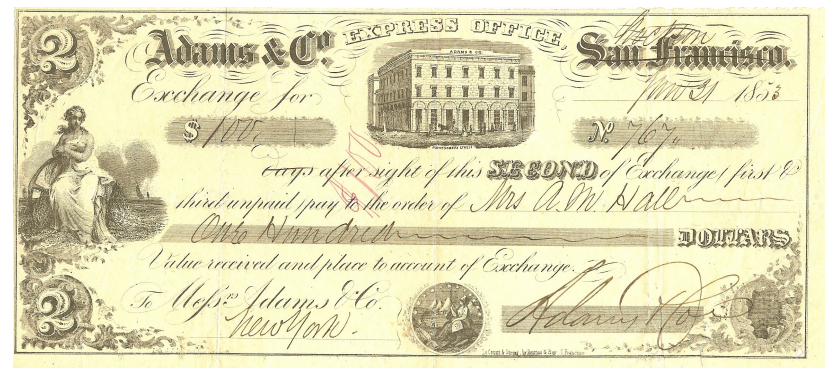 2 Adams & Co. EXPRESS OFFICE, San Francisco.
ADAMS & CO.
Exchange for 31 1853
$ 100. No. 767.
MONTGOMERY STREET
$100
Days after sight of this SECOND of Exchange (first &
third unpaid) pay to the order of Mrs A. M. Hall
One Hundred DOLLARS
Value received and place to account of Exchange.
To Messrs Adams & Co.
2 New York. Adams & Co